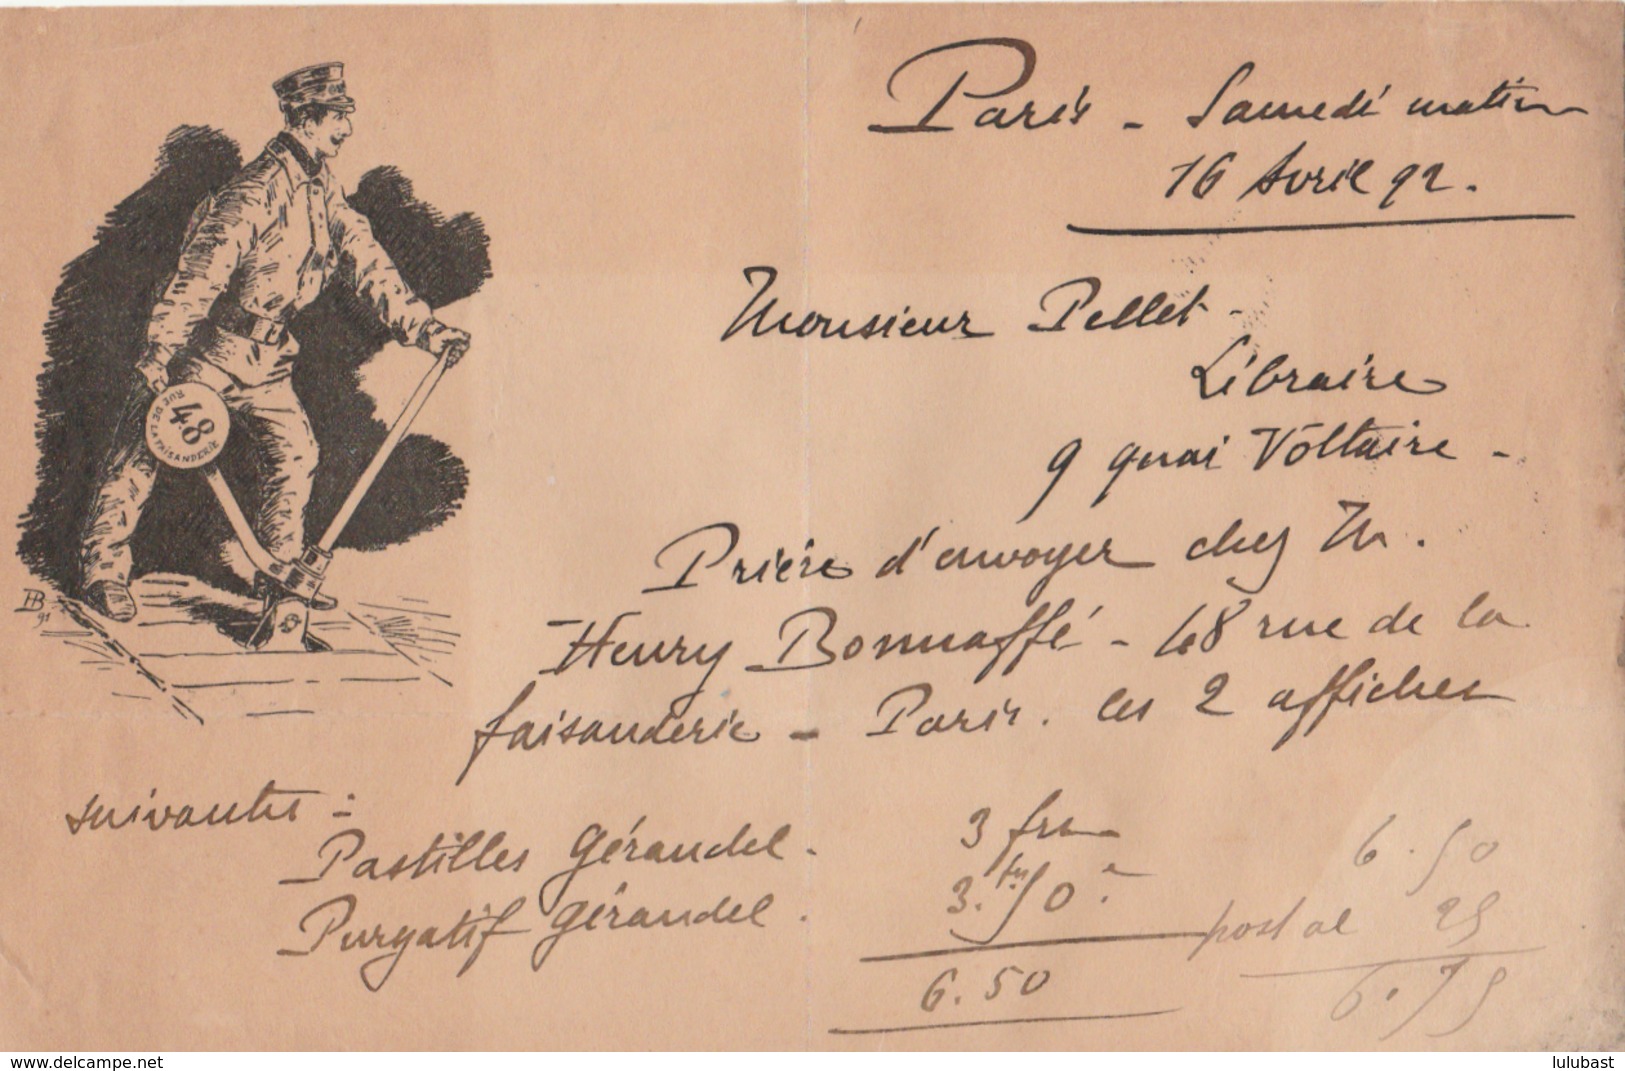 Paris - Samedi matin
16 Avril 92.
Monsieur Pellet -
Libraire
9 quai Voltaire -
Prière d'envoyer chez M.
Henry Bonnaffé - 48 rue de la
faisanderie - Paris. les 2 affiches
suivantes :
Pastilles Gérandel. 3 frs
Purgatif Gérandel. 3.frs 50c
6.50
6.50
postal 25
6.75
48
RUE DE LA FAISANDERIE
HB
91
www.delcampe.net
lulubast